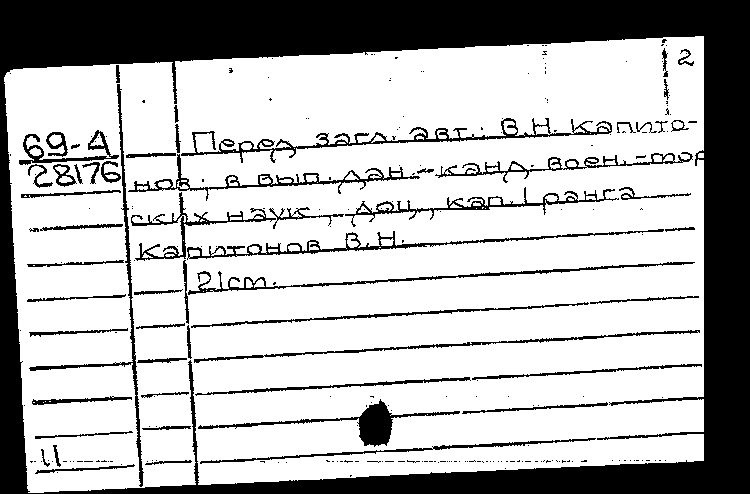 2
69-А
28176
Перед загл. авт.: В.Н. Капито-
нов; в вып. дан. - канд. воен.-мор
ских наук, доц., кап. 1 ранга
Капитонов В.Н.
21 см.
11